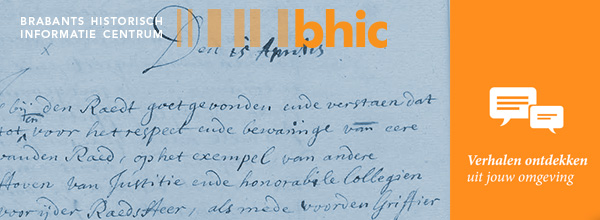 BRABANTS HISTORISCH
INFORMATIE CENTRUM
bhic
Den 15 Aprilis
bij den Raedt goetgevonden ende verstaen dat
tot en voor het respect ende bewaringe van eere
vanden Raed, op het exempel van andere
Hoven van Justitie ende honorabile Collegien
voor ijder Raedsheer, als mede voorden Griffier
Verhalen ontdekken
uit jouw omgeving